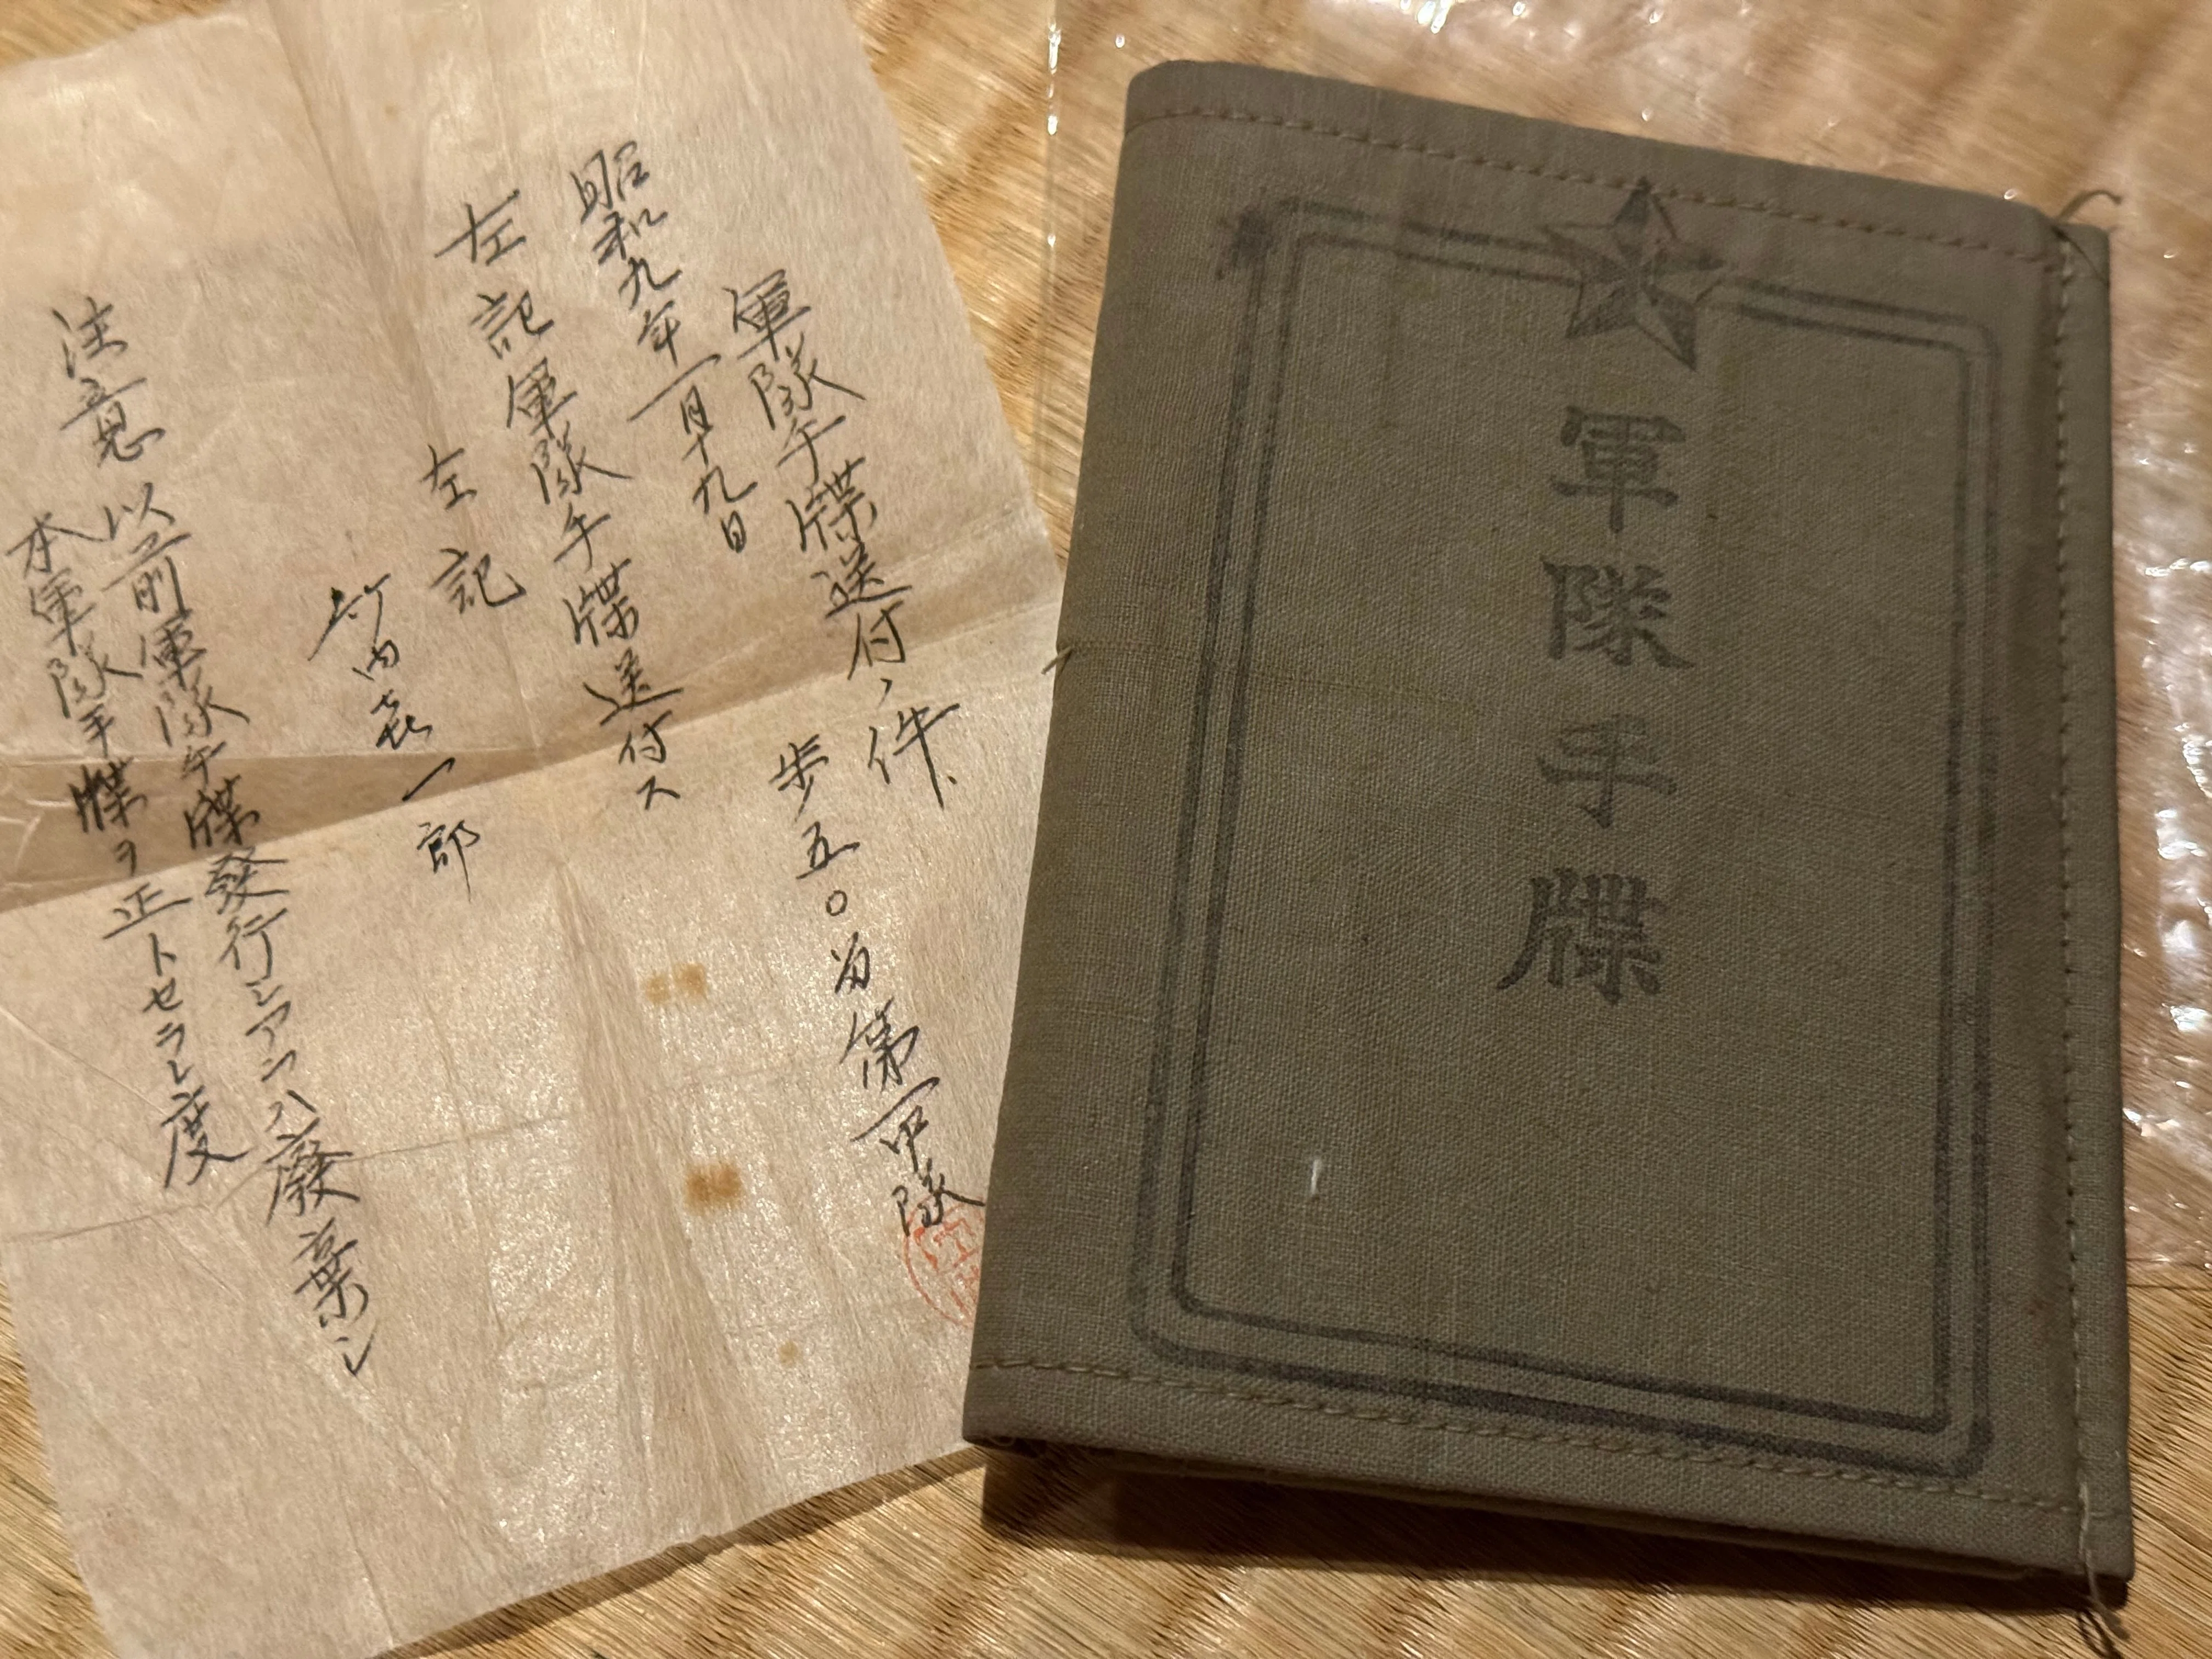 軍隊手牒送付ノ件
昭和九年一月十九日
歩五〇留第一中隊
左記軍隊手牒送付ス
左記
竹内喜一郎
注意 以前軍隊手牒發行シアラハ廢棄シ
本軍隊手牒ヲ正トセラレ度
軍隊手牒